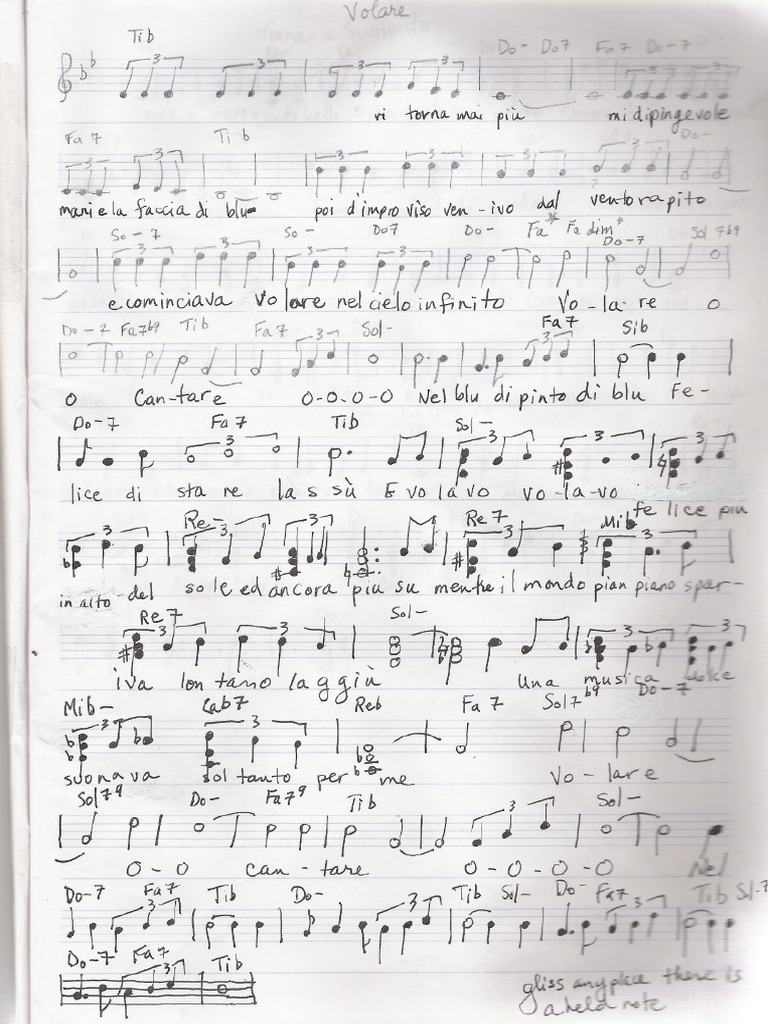 Volare
Tib Do- Do7 Fa7 Do-7
ri torna mai più mi dipingevole
Fa7 Tib Do-
mani e la faccia di blu poi d'improvviso ven-ivo dal vento rapito
So-7 So- Do7 Do- Fa* Fadim* Do-7 Sol7b9
e cominciava Volare nel cielo infinito Vo-la-re O
Do-7 Fa7b9 Tib Fa7 Sol- Fa7 Sib
O Can-tare O-O-O-O Nel blu dipinto di blu Fe-
Do-7 Fa7 Tib Sol-
lice di stare lassù E volavo vo-la-vo
fe lice piu
Re- Re7 Mib
in alto del sole ed ancora piu su mentre il mondo pian piano spar-
Re7 Sol-
iva lontano laggiù Una musica dolce
Mib- Lab7 Reb Fa7 Sol7b9 Do-7
suonava soltanto per me Vo-lare
Sol79 Do- Fa79 Tib Sol-
O-O can-tare O-O-O-O Nel
Do-7 Fa7 Tib Do- Tib Sol- Do- Fa7 Tib Sol-7
Do-7 Fa7 Tib
gliss anyplace there is
a held note